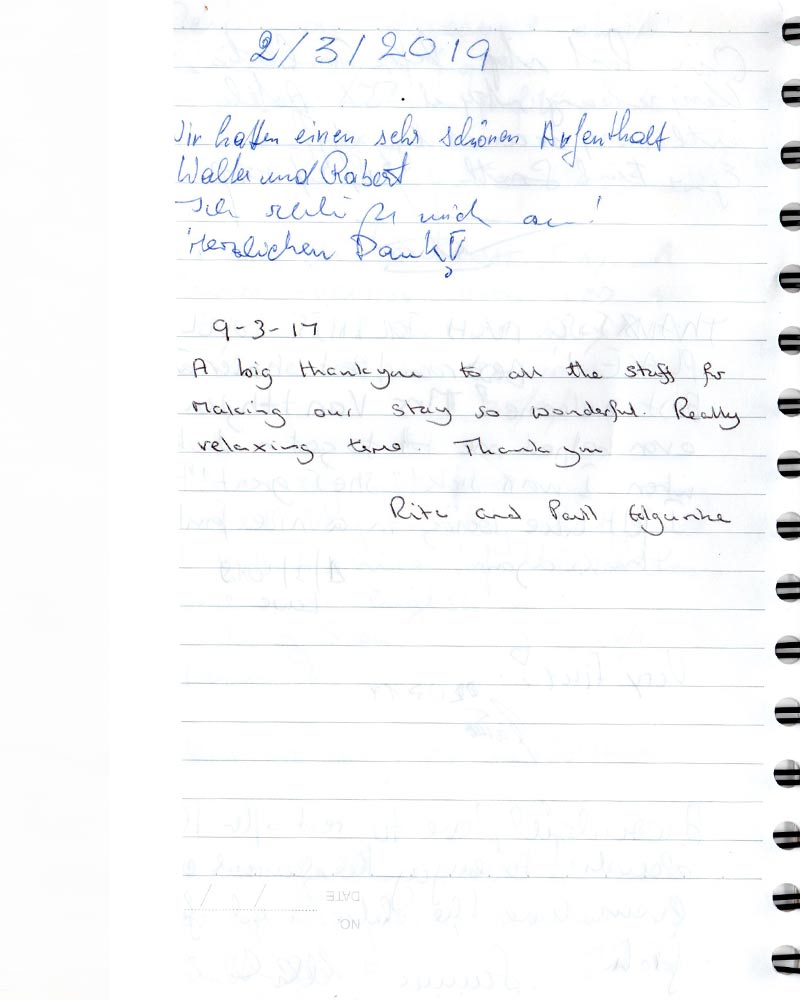 2/3/2019
Wir hatten einen sehr schönen Aufenthalt
Walter und Robert
Ich schließe mich an!
Herzlichen Dank!
9-3-17
A big thankyou to all the staff for
making our stay so wonderful. Really
relaxing time. Thank you
Rita and Paul
DATE
NO.